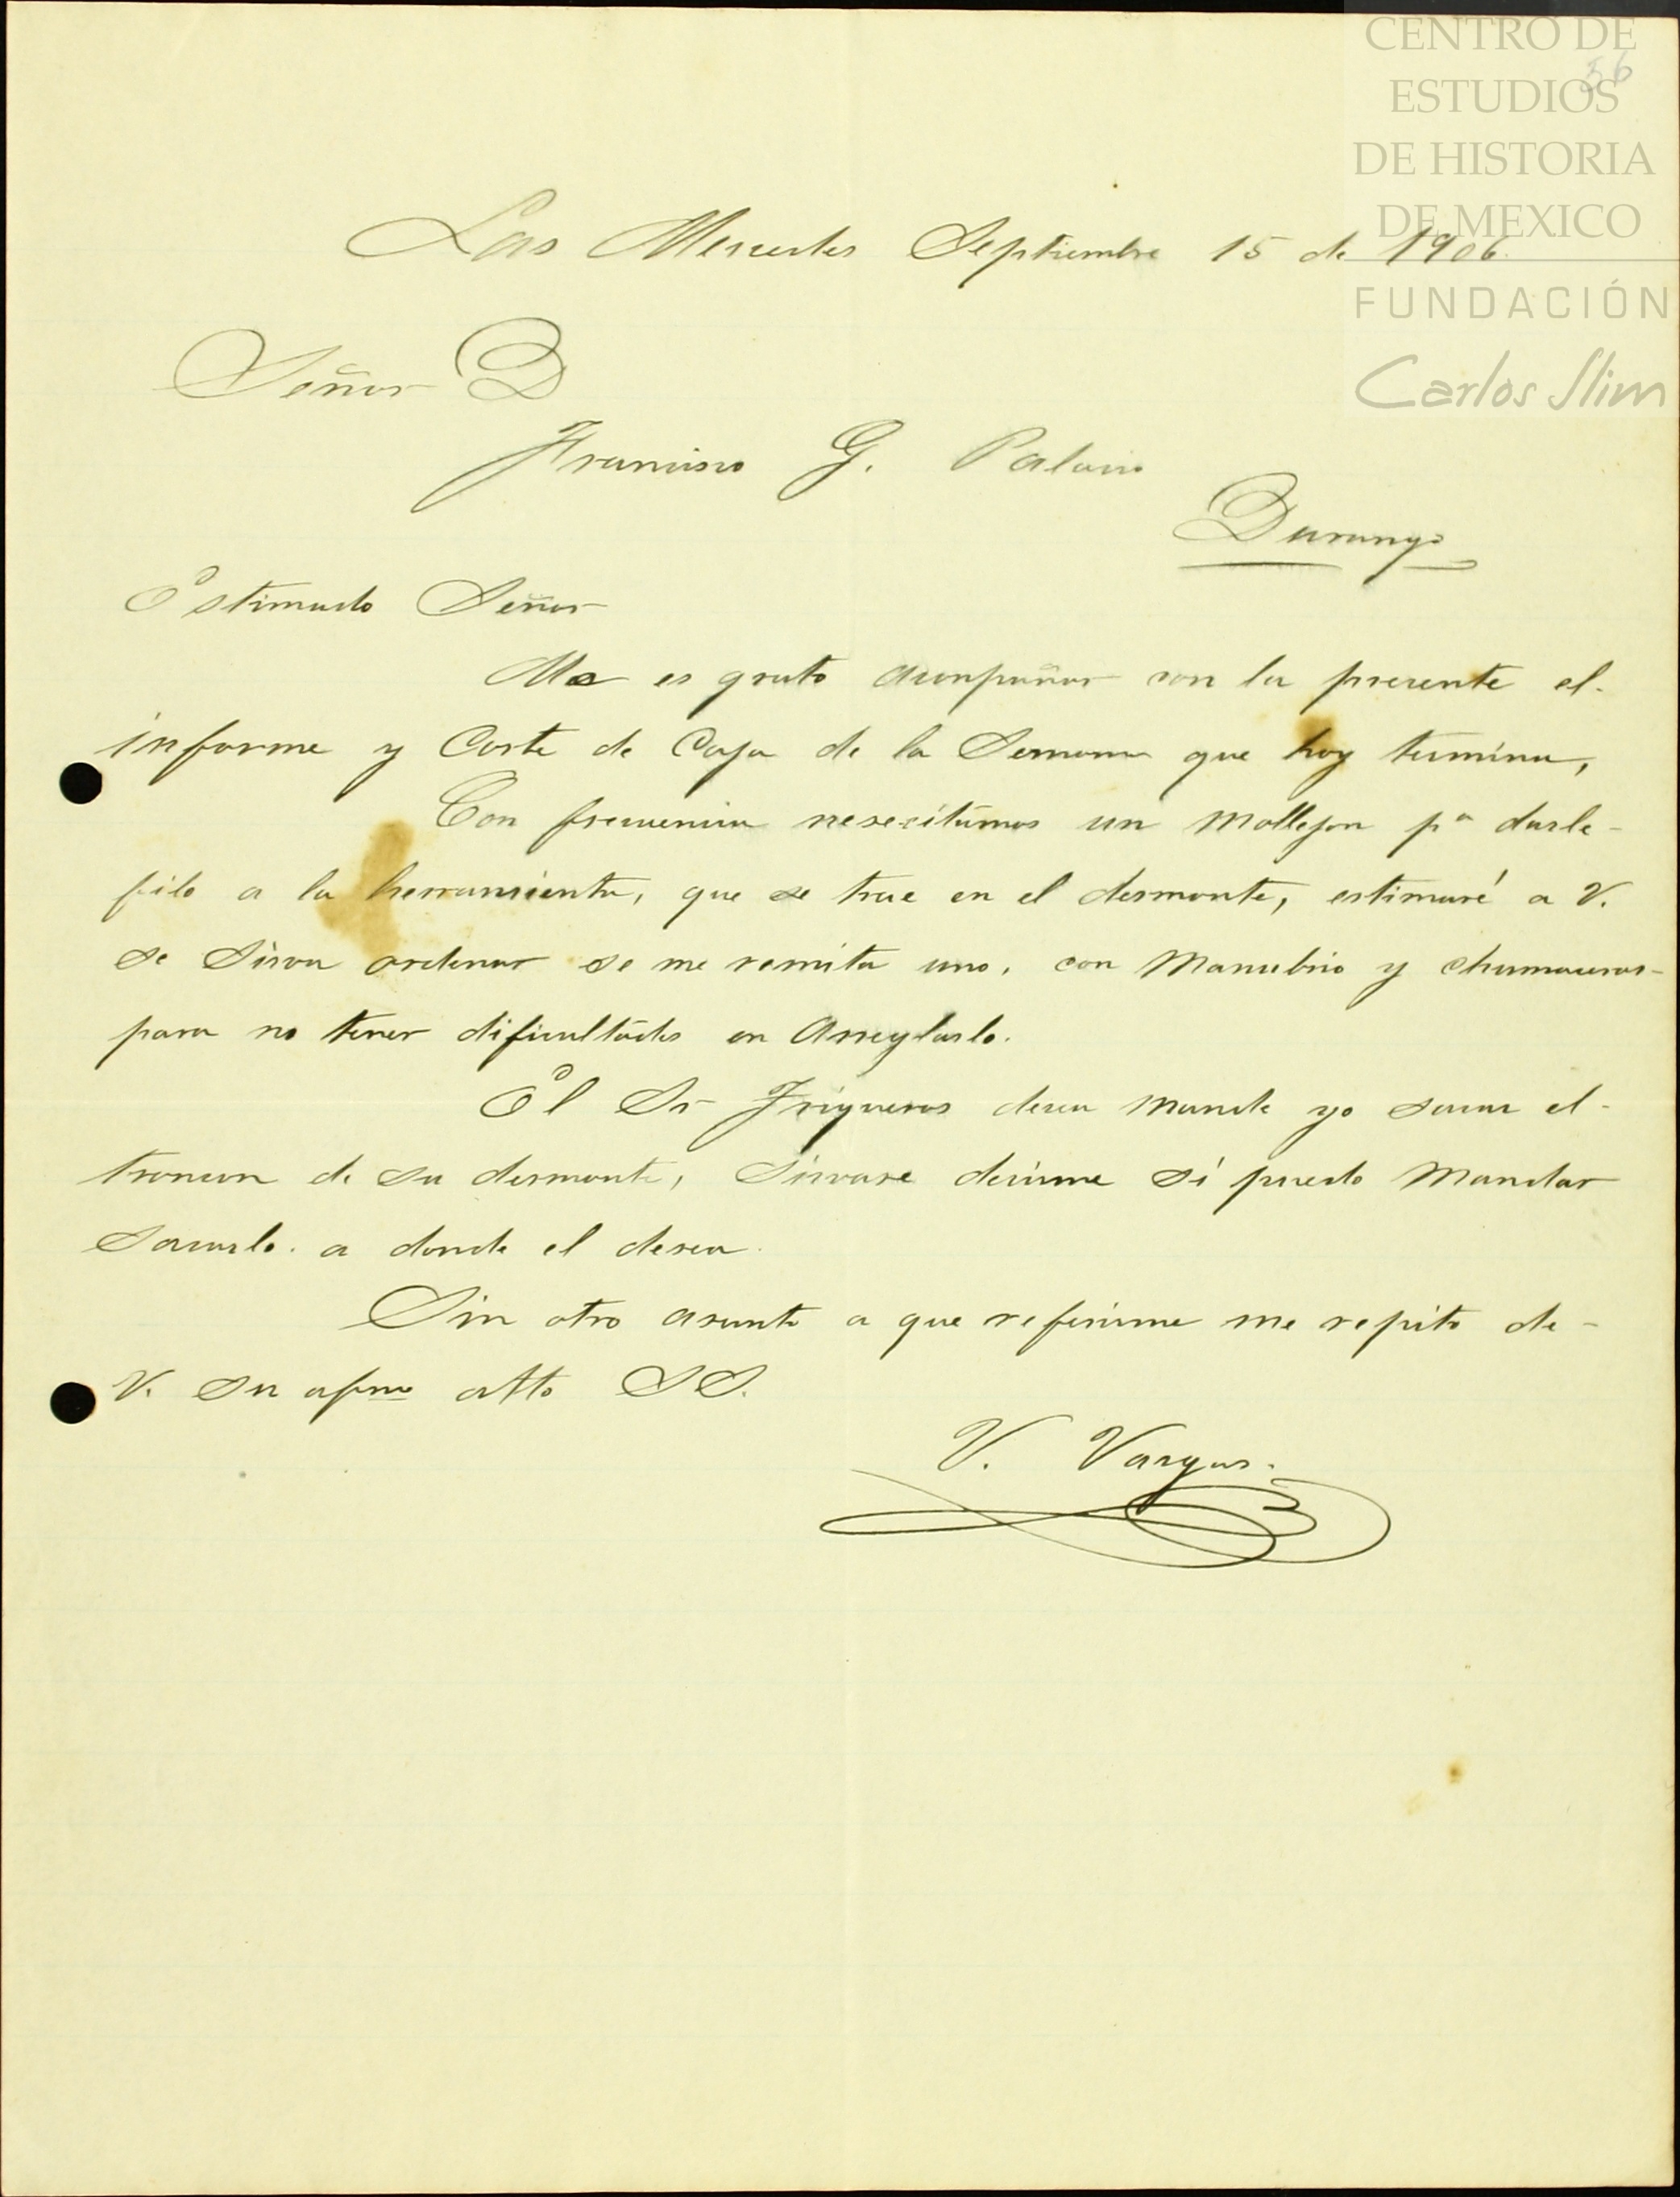 CENTRO DE
ESTUDIOS
DE HISTORIA
DE MEXICO
FUNDACIÓN
Carlos Slim
56
Las Mercedes Septiembre 15 de 1906.
Señor D
Francisco G. Palacio
Durango
Estimado Señor
Me es grato acompañar con la presente el-
informe y Corte de Caja de la Semana que hoy termina,
Con frecuencia nesesitámos un Mollejon pª darle-
filo a la herramienta, que se trae en el desmonte, estimaré a V.
se Sirva ordenar se me remita uno, con Manubrio y chumaceras-
para no tener dificultádes en Arreglarlo.
El Sr Trigueros desea Mande yo sacar el-
troncon de su desmonte, Sirvase decirme sí puedo Mandar
Sacarlo. a donde el desea.
Sin otro asunto a que referirme me repito de-
V. Su afmo atto SS.
V. Vargas.